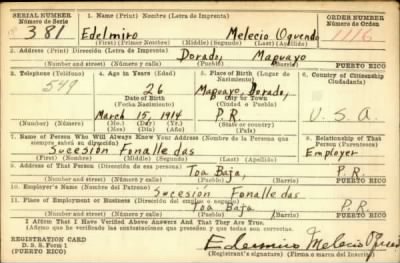 SERIAL NUMBER 1. Name (Print) Nombre (Letra de Imprenta) ORDER NUMBER
Número de Serie Número de Orden
S 381 Edelmiro Melecio Oquendo 1116
(First) (Primer Nombre) (Middle) (Segundo) (Last) (Apellido)
2. Address (Print) Dirección (Letra de Imprenta)
Dorado, Maguayo
Number and street (Número y calle) (Town) (Pueblo) (Barrio) PUERTO RICO
3. Telephone (Teléfono) 4. Age in Years (Edad) 5. Place of Birth (Lugar de Nacimiento) 6. Country of Citizenship Ciudadanía
549 26 Maguayo, Dorado,
Date of Birth (Fecha Nacimiento) City or Town (Ciudad o Pueblo)
March 15, 1914 P.R. U.S.A.
(Number) (Número) (Mo.) (Day) (Yr.) (State or country) (Estado o país)
(Mes) (Día) (Año)
7. Name of Person Who Will Always Know Your Address (Nombre de la Persona que siempre sabrá su dirección) 8. Relationship of That Person (Parentesco)
Sucesión Fonalledas Employer
(First) (Nombre) (Middle) (Segundo) (Last) (Apellido)
9. Address of That Person (Dirección de esa persona)
Toa Baja, P.R.
Number and street (Número y calle) (Town) (Pueblo) (Barrio) PUERTO RICO
10. Employer's Name (Nombre del Patrono)
Sucesión Fonalledas
11. Place of Employment or Business (Dirección del empleo o negocio)
Toa Baja P.R.
Number and street (Número y calle) (Town) (Pueblo) (Barrio) PUERTO RICO
I Affirm That I Have Verified Above Answers And That They Are True.
(Afirmo que he verificado las contestaciones que preceden y que son ciertas.)
REGISTRATION CARD
D. S. S. Form 1
(PUERTO RICO)
Edelmiro Melecio Oquendo
(Registrant's signature) (Firma o marca del Inscrito)